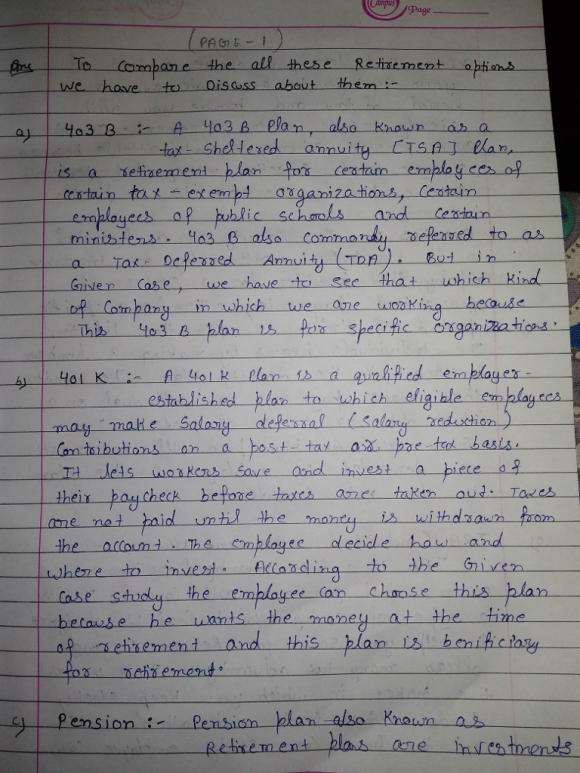 Campus
Page
(PAGE - 1)
Ans To compare the all these Retirement options
we have to Discuss about them :-
a) 403 B :- A 403 B Plan, also known as a
tax - sheltered annuity [TSA] Plan,
is a retirement plan for certain employees of
certain tax - exempt organizations, certain
employees of public schools and certain
ministers. 403 B also commonly referred to as
a Tax - Deferred Annuity (TDA). But in
Given case, we have to see that which kind
of Company in which we are working because
This 403 B plan is for specific organizations.
b) 401 K :- A 401 K Plan is a qualified employer -
established plan to which eligible employees
may make Salary deferral (Salary reduction)
Contributions on a post - tax or pre - tax basis.
It lets workers save and invest a piece of
their paycheck before taxes are taken out. Taxes
are not paid until the money is withdrawn from
the account. The employee decide how and
where to invest. According to the Given
case study the employee can choose this plan
because he wants the money at the time
of retirement and this plan is benificiary
for retirement.
c) Pension :- Pension plan also known as
Retirement plans are investments